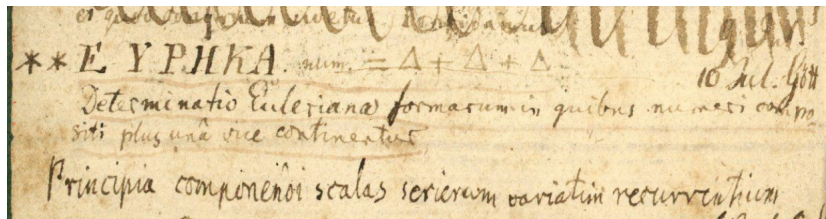 ** ΕΥΡΗΚΑ. num. = Δ + Δ + Δ.
10 Jul. Gött
Determinatio Euleriana formarum in quibus numeri compo
siti plus unâ vice continentur
Principia componendi scalas serierum variatim recurrentium